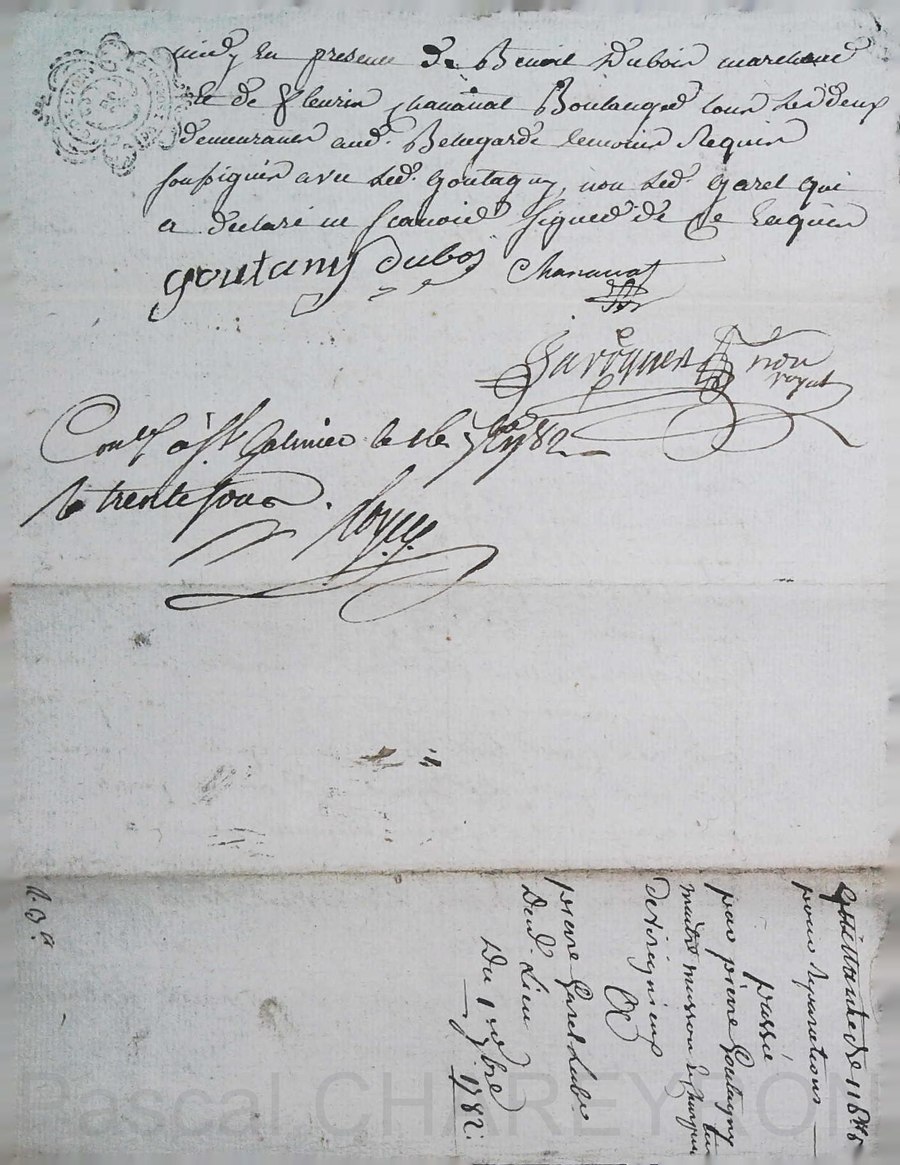 midy en presence de Benoit Dubois marchand
et de fleurin chananat Boulanger tous les deux
demeurants aud. Bellegarde temoins Requis
soussignés avec led. goutagny, non led. garel qui
a declaré ne scavoir signer de ce enquis
goutany dubos Chananat
no.re
royal
Con.lé à St. Galmier le 16. 7bre 1782
R trente sous.
Quittance de 118 lt 8
pour reparations
passée
par pierre Goutagny
maitre masson
de Virigneux
à
pierre Garel Lubi
Dud. Lieu
Du 1er 7bre
1782.
Pascal CHAREYRON